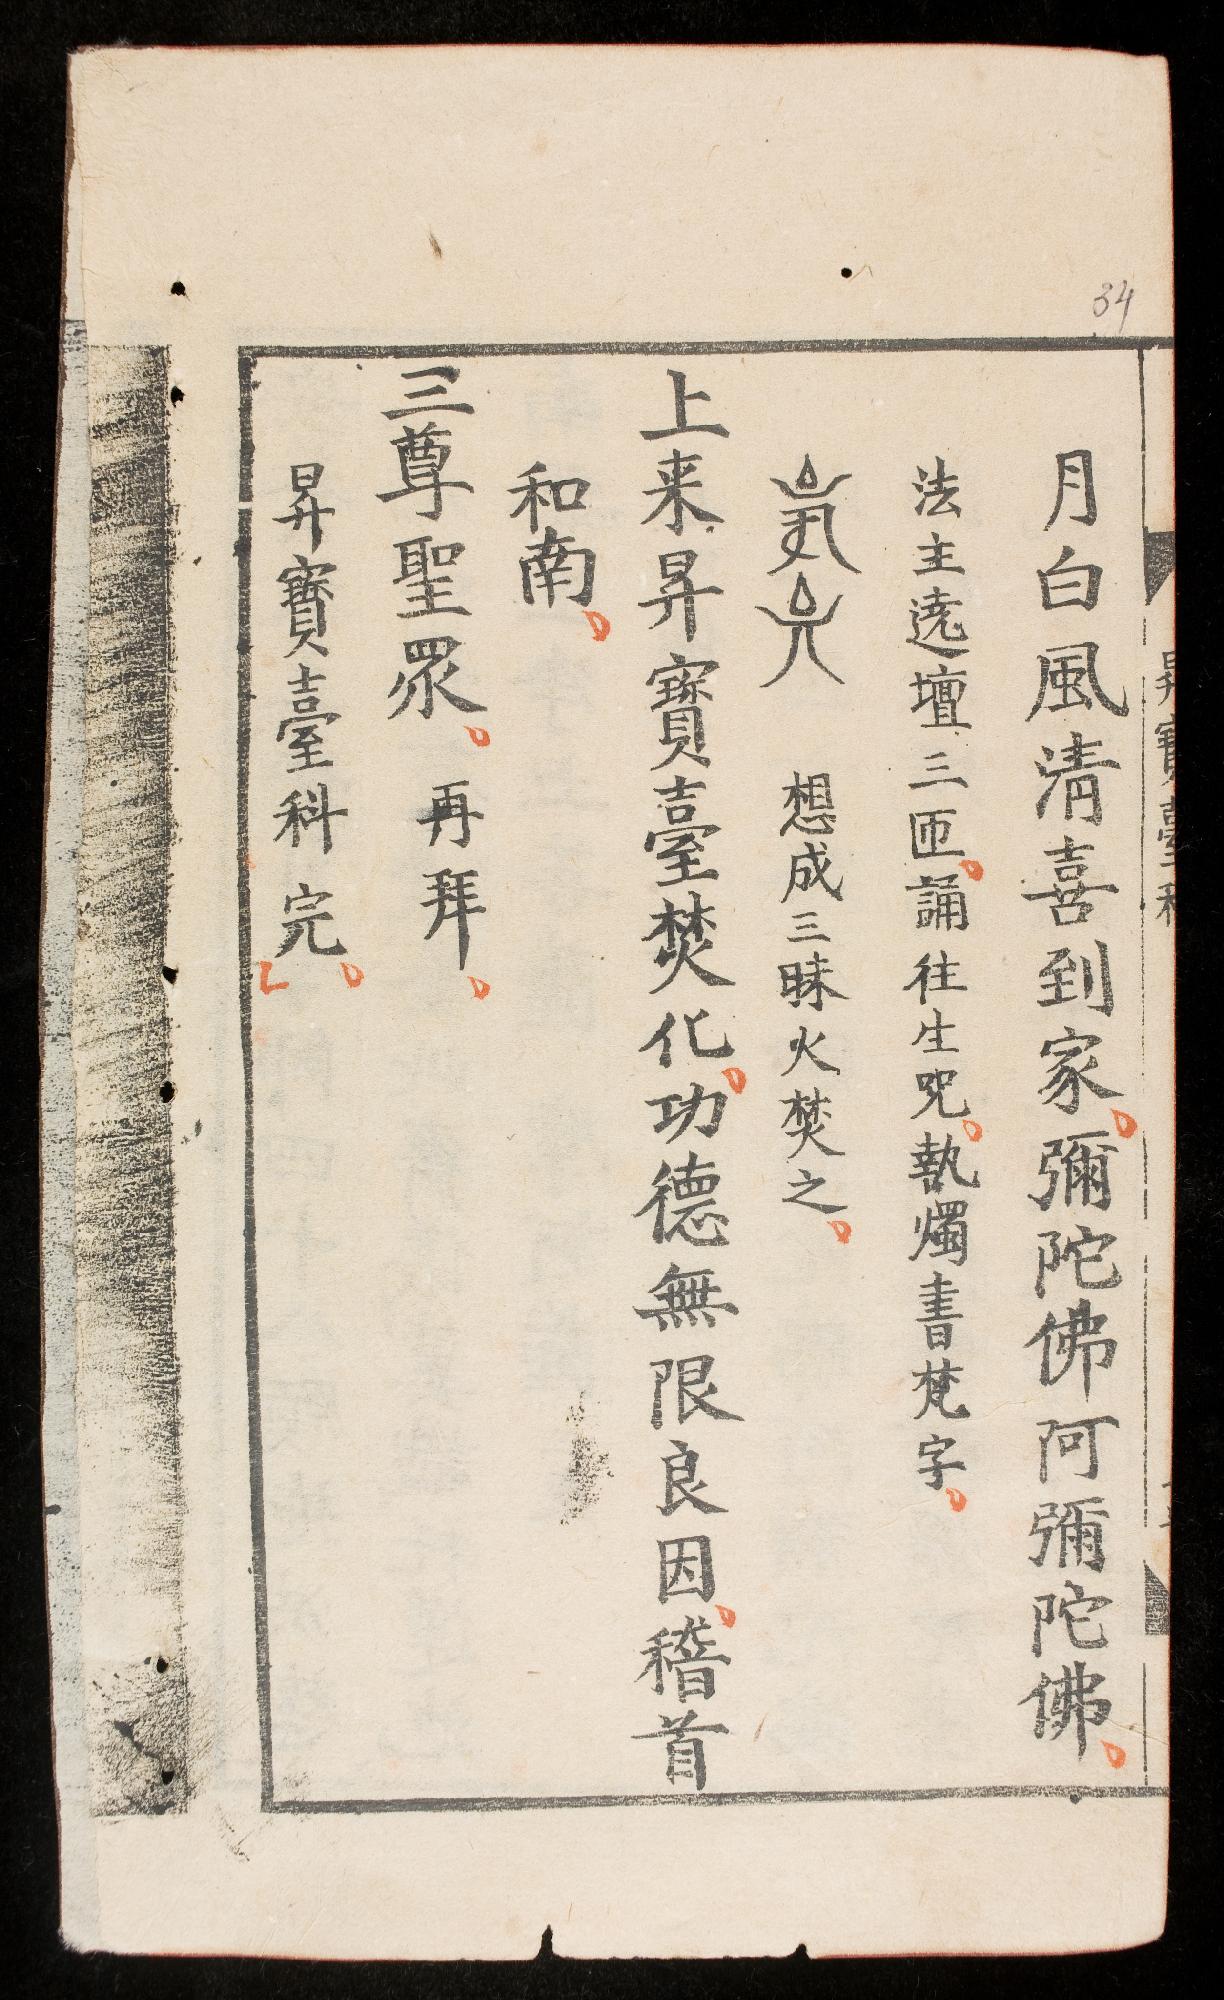 34
月白風清喜到家彌陀佛阿彌陀佛
法主遶壇三匝誦往生咒執燭書梵字
想成三昧火焚之
上来昇寶臺焚化功德無限良因稽首
和南
三尊聖眾 再拜
昇寶臺科 完